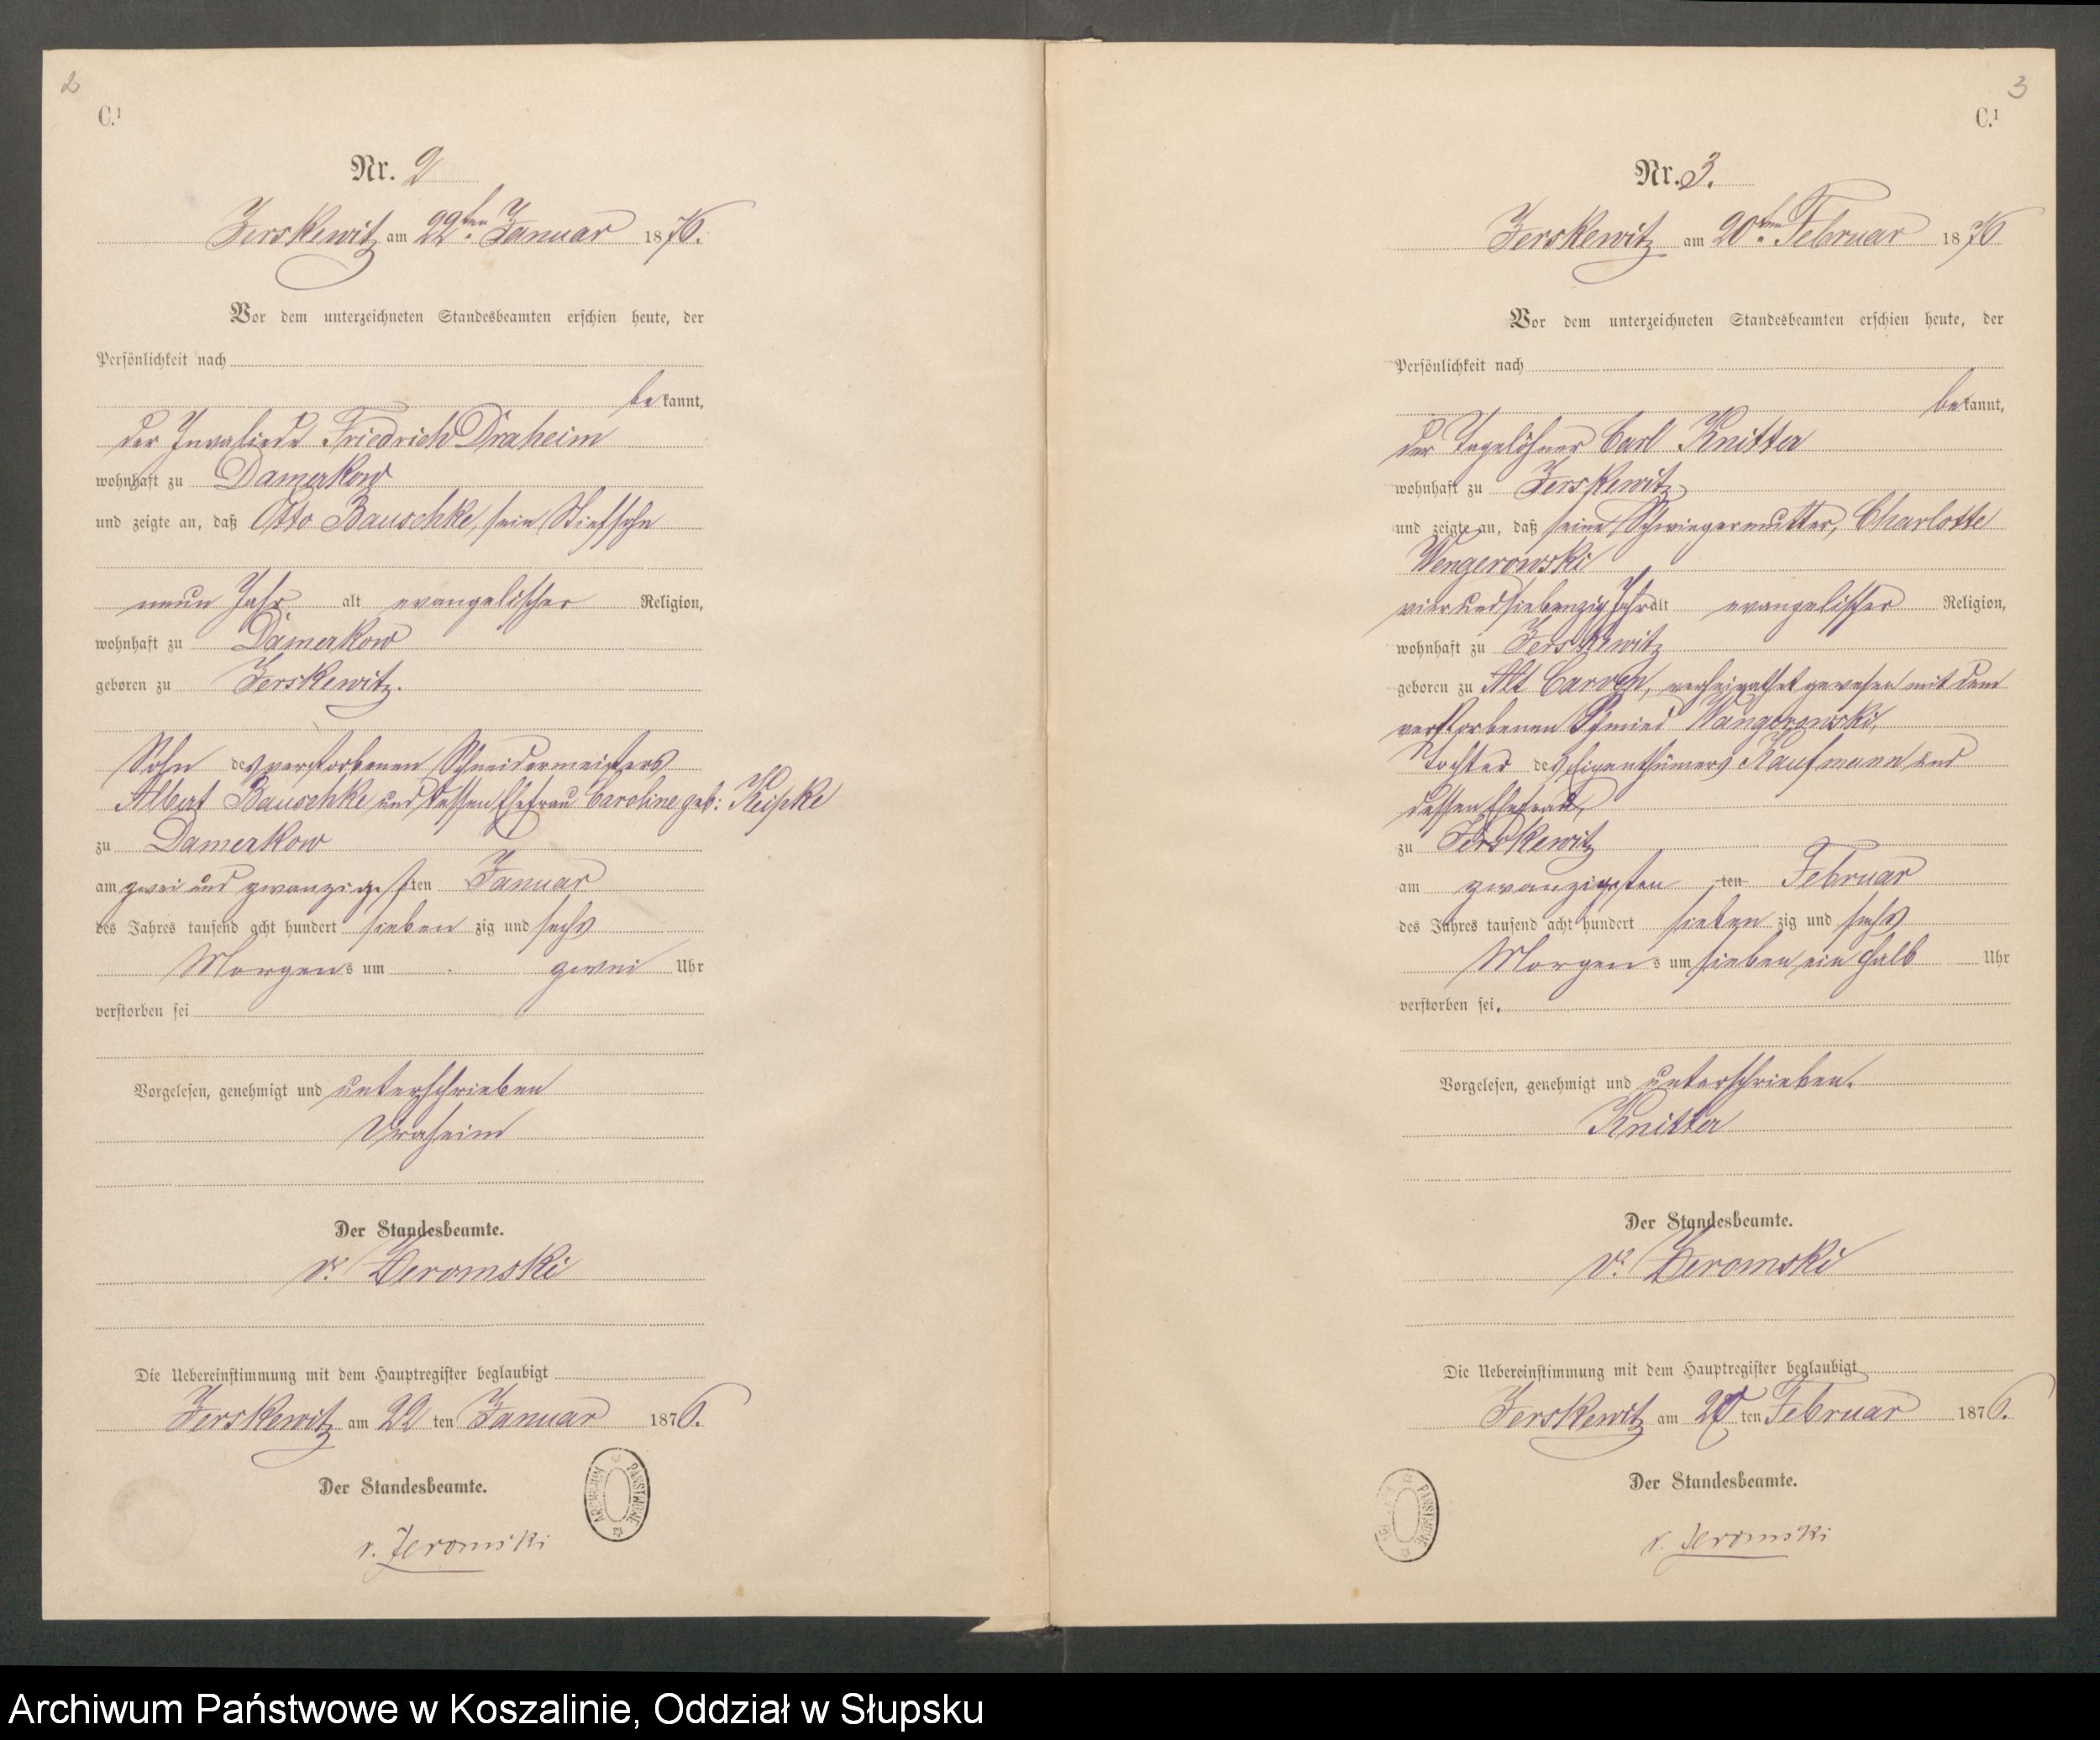 2
C.¹
Nr. 2
Jerskewitz am 22ten Januar 1876.
Vor dem unterzeichneten Standesbeamten erschien heute, der
Persönlichkeit nach
bekannt,
der Invaliede Friedrich Draheim
wohnhaft zu Damerkow
und zeigte an, daß Otto Bauschke, sein Stiefsohn
neun Jahr alt evangelischer Religion,
wohnhaft zu Damerkow
geboren zu Jerskewitz.
Sohn des verstorbenen Schneidermeisters
Albert Bauschke und dessen Ehefrau Caroline geb:
zu Damerkow
am zwei und zwanzigsten Januar
des Jahres tausend acht hundert sieben zig und sechs
Morgens um zwei Uhr
verstorben sei
Vorgelesen, genehmigt und unterschrieben
Draheim
Der Standesbeamte.
v. Jeromski
Die Uebereinstimmung mit dem Hauptregister beglaubigt
Jerskewitz am 22 ten Januar 1876.
Der Standesbeamte.
v. Jeromski
ARCHIWUM PAŃSTWOWE
3
C.¹
Nr. 3.
Jerskewitz am 20ten Februar 1876
Vor dem unterzeichneten Standesbeamten erschien heute, der
Persönlichkeit nach
bekannt,
der Tagelöhner Carl Knitter
wohnhaft zu Jerskewitz
und zeigte an, daß seine Schwiegermutter, Charlotte
Wengerowski
vier und siebenzig Jahr alt evangelischer Religion,
wohnhaft zu Jerskewitz
geboren zu Alt Carven, verheirathet gewesen mit dem
verstorbenen Schmied Wangerowski,
Tochter des Eigenthümers Kaufmann und
dessen Ehefrau,
zu Jerskewitz
am zwanzigsten ten Februar
des Jahres tausend acht hundert sieben zig und sechs
Morgens um sieben ein halb Uhr
verstorben sei.
Vorgelesen, genehmigt und unterschrieben.
Knitter
Der Standesbeamte.
v. Jeromski
Die Uebereinstimmung mit dem Hauptregister beglaubigt
Jerskewitz am 20 ten Februar 1876.
Der Standesbeamte.
v. Jeromski
PAŃSTWOWE
Archiwum Państwowe w Koszalinie, Oddział w Słupsku